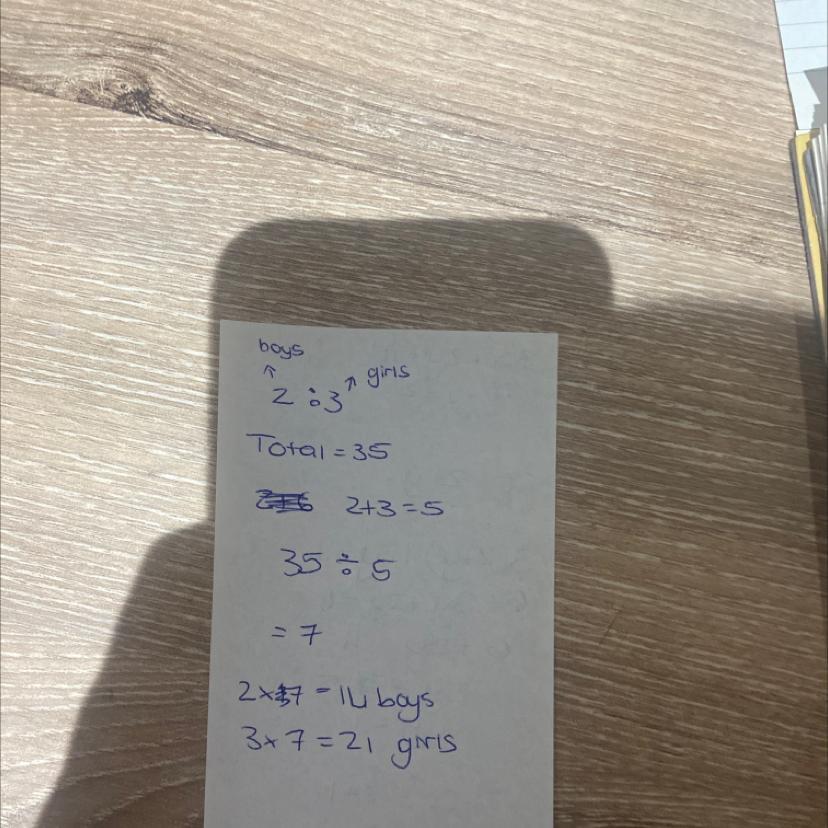 boys
↑ ↗ girls
2 : 3
Total = 35
2+3=5
35 ÷ 5
= 7
2×7 = 14 boys
3×7 = 21 girls